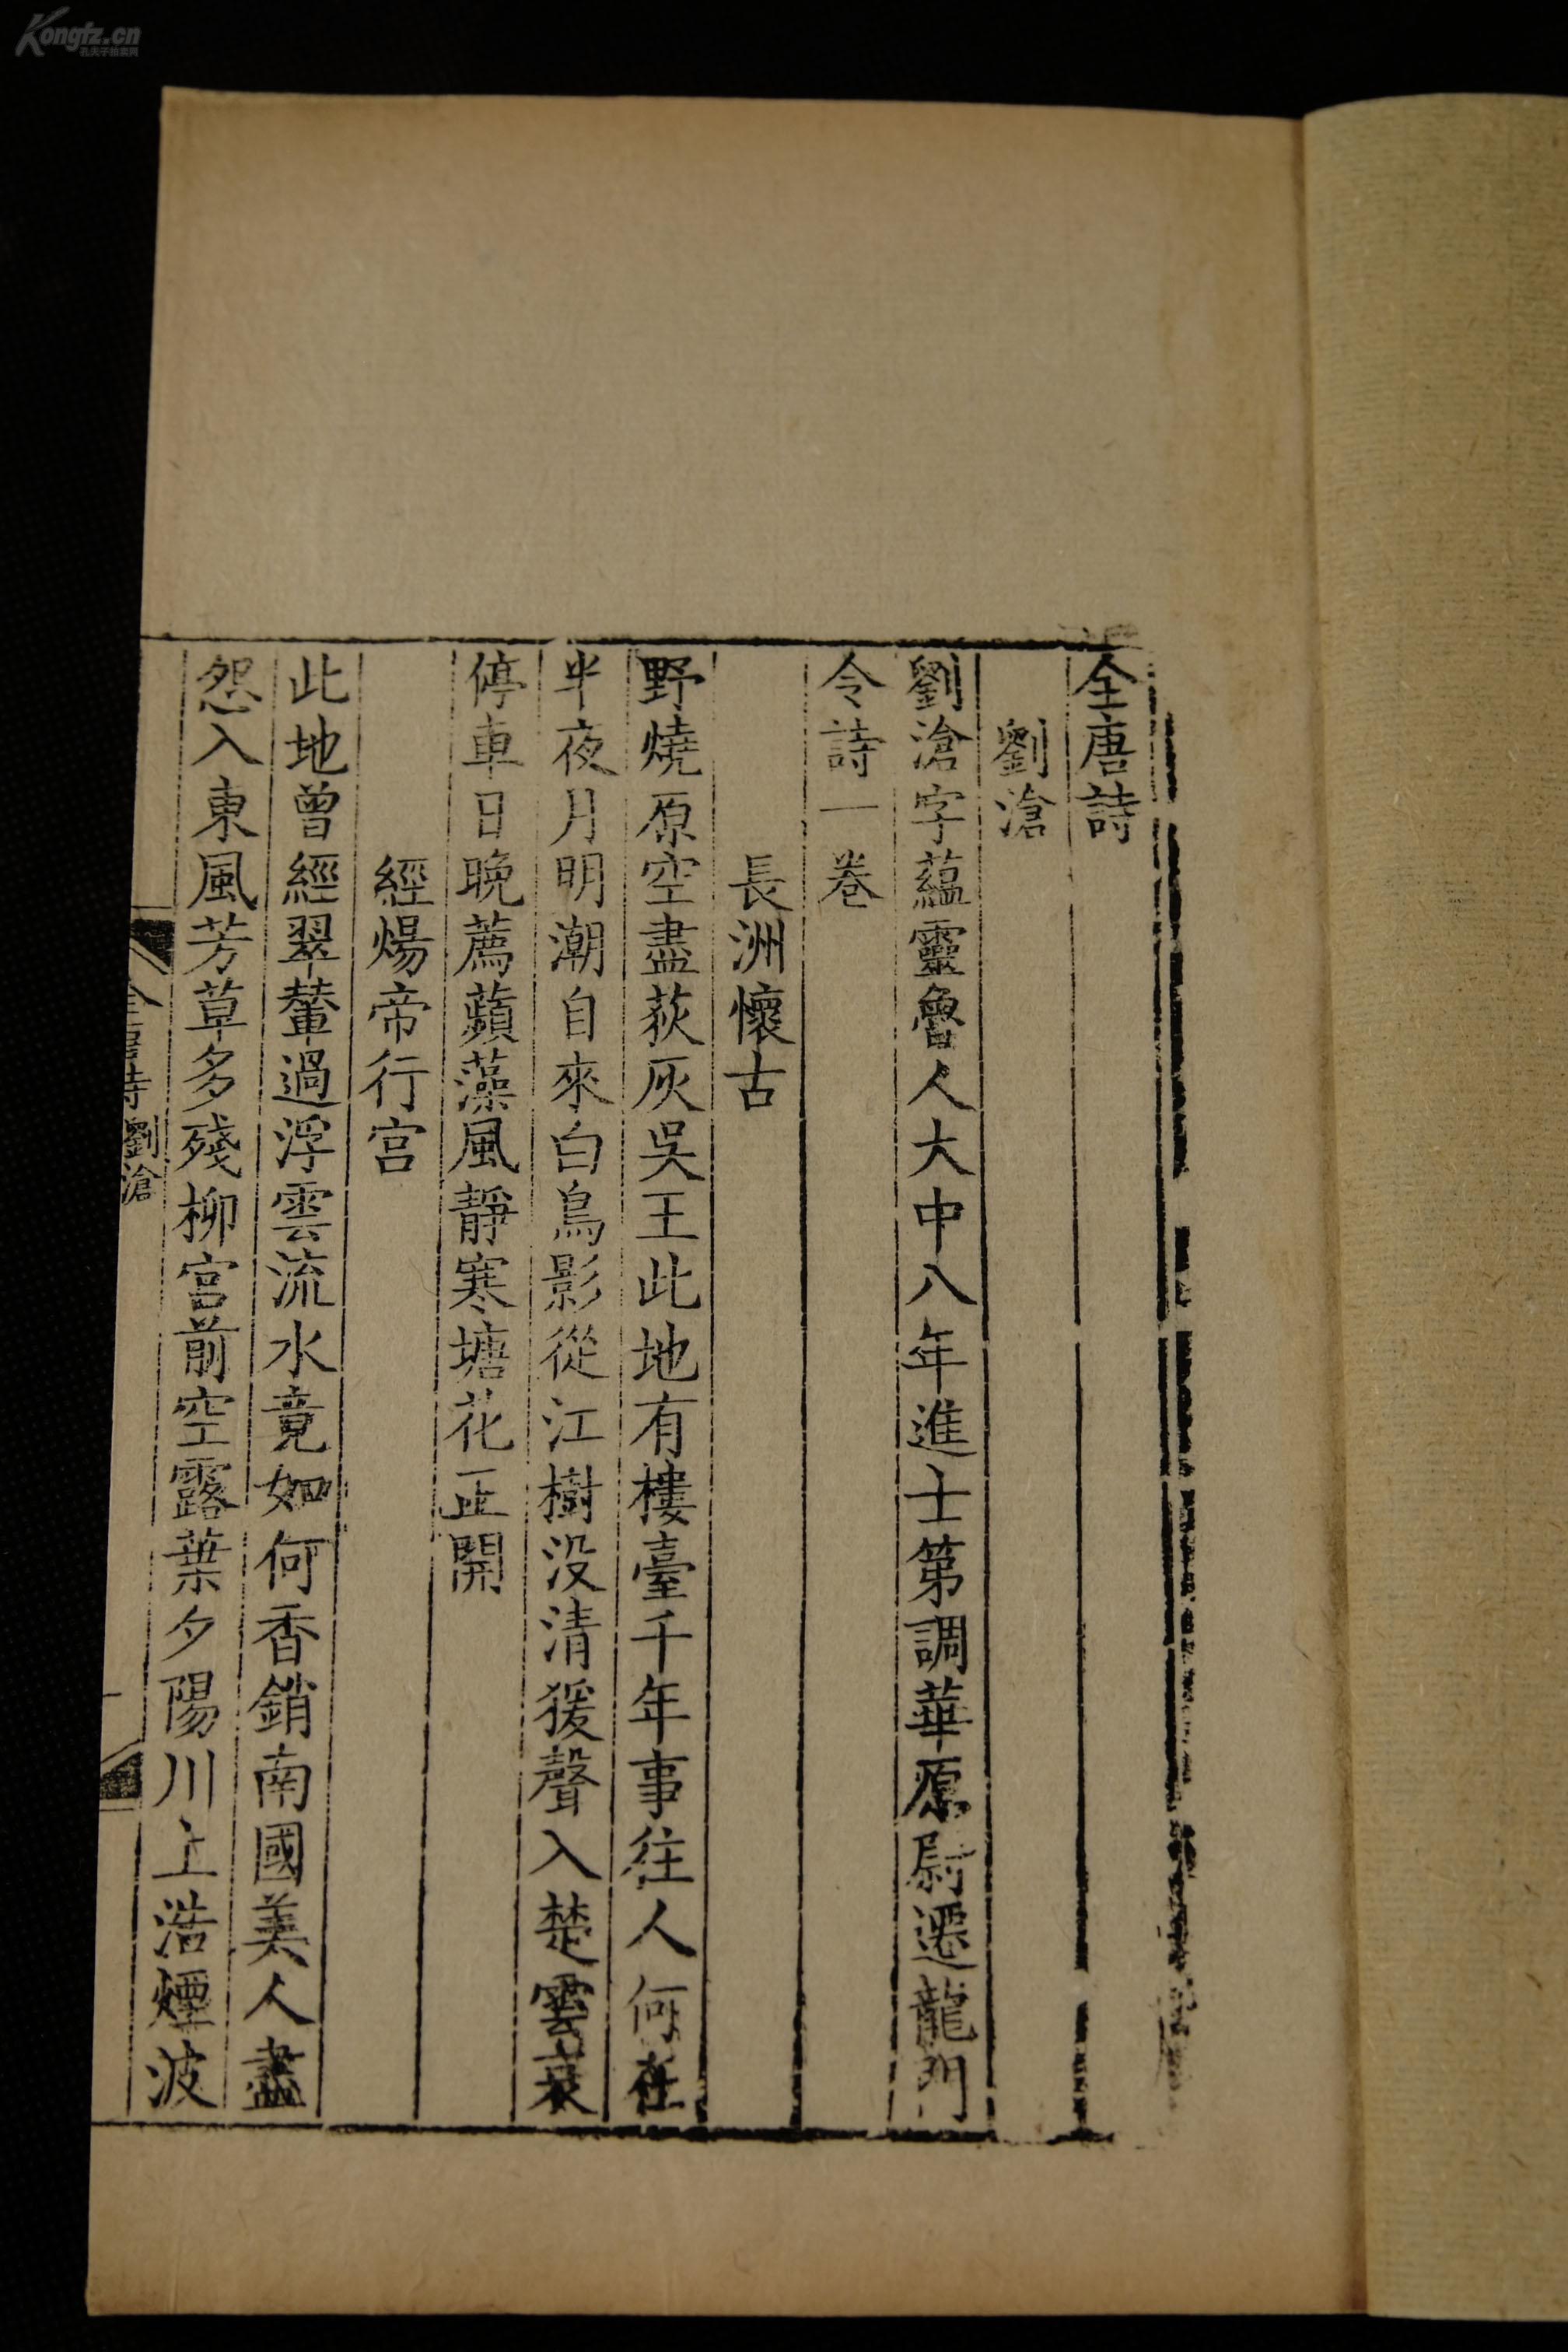 Kongfz.cn
孔夫子拍卖网
全唐詩
劉滄
劉滄字蘊靈魯人大中八年進士第調華原尉遷龍門
令詩一卷
長洲懷古
野燒原空盡荻灰吳王此地有樓臺千年事往人何在
半夜月明潮自來白鳥影從江樹没清猨聲入楚雲哀
停車日晚薦蘋藻風靜寒塘花正開
經煬帝行宫
此地曾經翠輦過浮雲流水竟如何香銷南國美人盡
怨入東風芳草多殘柳宫前空露葉夕陽川上浩煙波
全唐詩 劉滄
一